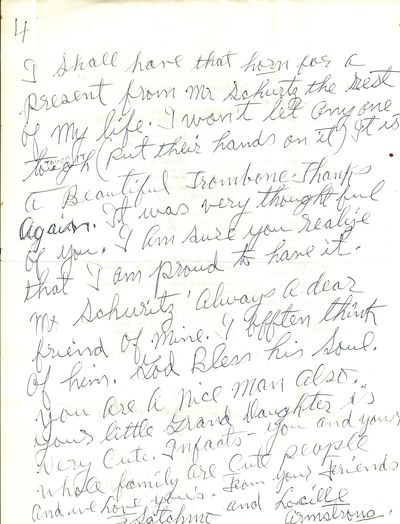 4
I Shall have that horn for a
present from Mr Schuritz the rest
of my life. I won't let anyone
tough (put their hands on it) It is
a Beautiful Trombone. Thanks
Again. It was very thoughtful
of you. I am sure you realize
that I am proud to have it.
Mr Schuritz' Always a dear
friend of mine. I offten think
of him. God Bless his Soul.
You are a Nice man also.
Your little Grand Daughter is
Very Cute. Infacts- you and your
whole family are Cute people
And we love yours. From your Friends
Satchmo and Lucille
Armstrong.